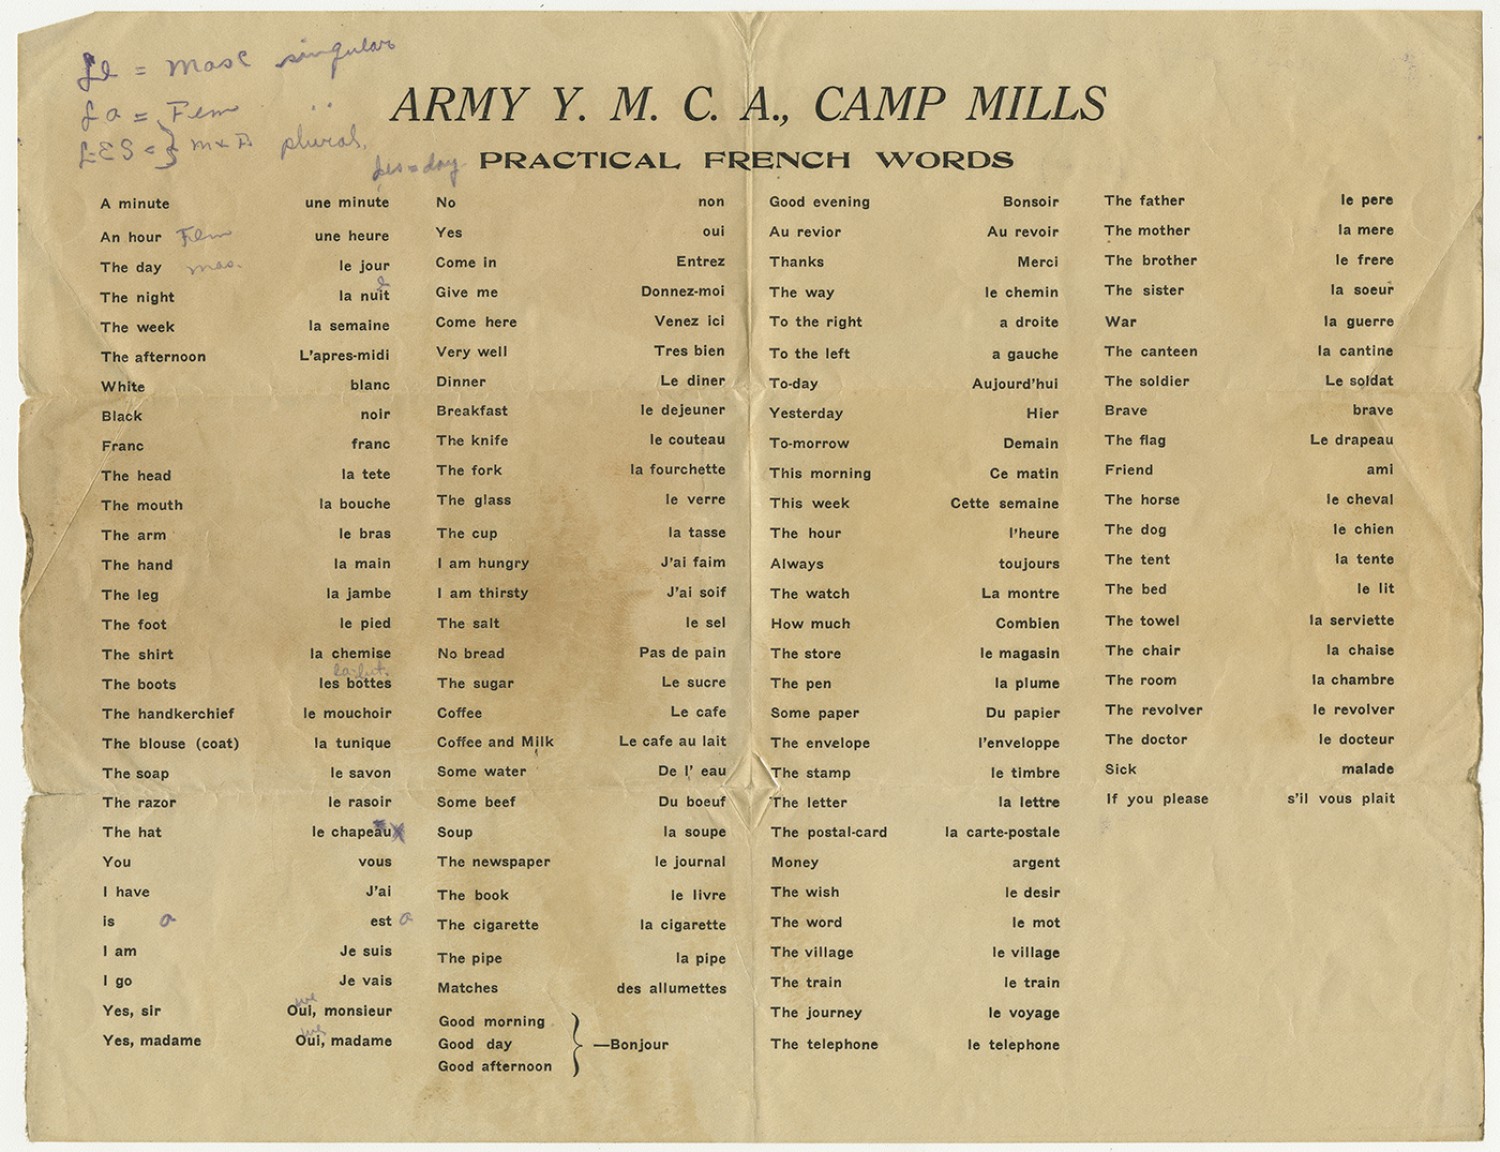 Le = Masc singular
La = Fem " "
LES = } M & F plural.
Les = day
ARMY Y. M. C. A., CAMP MILLS
PRACTICAL FRENCH WORDS
A minute une minute
An hour Fem une heure
The day mas. le jour
The night la nuit
The week la semaine
The afternoon L'apres-midi
White blanc
Black noir
Franc franc
The head la tete
The mouth la bouche
The arm le bras
The hand la main
The leg la jambe
The foot le pied
The shirt la chemise
The boots les bottes
The handkerchief le mouchoir
The blouse (coat) la tunique
The soap le savon
The razor le rasoir
The hat le chapeau
You vous
I have J'ai
is a est a
I am Je suis
I go Je vais
we
Yes, sir Oui, monsieur
we
Yes, madame Oui, madame
No non
Yes oui
Come in Entrez
Give me Donnez-moi
Come here Venez ici
Very well Tres bien
Dinner Le diner
Breakfast le dejeuner
The knife le couteau
The fork la fourchette
The glass le verre
The cup la tasse
I am hungry J'ai faim
I am thirsty J'ai soif
The salt le sel
No bread Pas de pain
The sugar Le sucre
Coffee Le cafe
Coffee and Milk Le cafe au lait
Some water De l' eau
Some beef Du boeuf
Soup la soupe
The newspaper le journal
The book le livre
The cigarette la cigarette
The pipe la pipe
Matches des allumettes
Good morning
Good day } —Bonjour
Good afternoon
Good evening Bonsoir
Au revior Au revoir
Thanks Merci
The way le chemin
To the right a droite
To the left a gauche
To-day Aujourd'hui
Yesterday Hier
To-morrow Demain
This morning Ce matin
This week Cette semaine
The hour l'heure
Always toujours
The watch La montre
How much Combien
The store le magasin
The pen la plume
Some paper Du papier
The envelope l'enveloppe
The stamp le timbre
The letter la lettre
The postal-card la carte-postale
Money argent
The wish le desir
The word le mot
The village le village
The train le train
The journey le voyage
The telephone le telephone
The father le pere
The mother la mere
The brother le frere
The sister la soeur
War la guerre
The canteen la cantine
The soldier Le soldat
Brave brave
The flag Le drapeau
Friend ami
The horse le cheval
The dog le chien
The tent la tente
The bed le lit
The towel la serviette
The chair la chaise
The room la chambre
The revolver le revolver
The doctor le docteur
Sick malade
If you please s'il vous plait